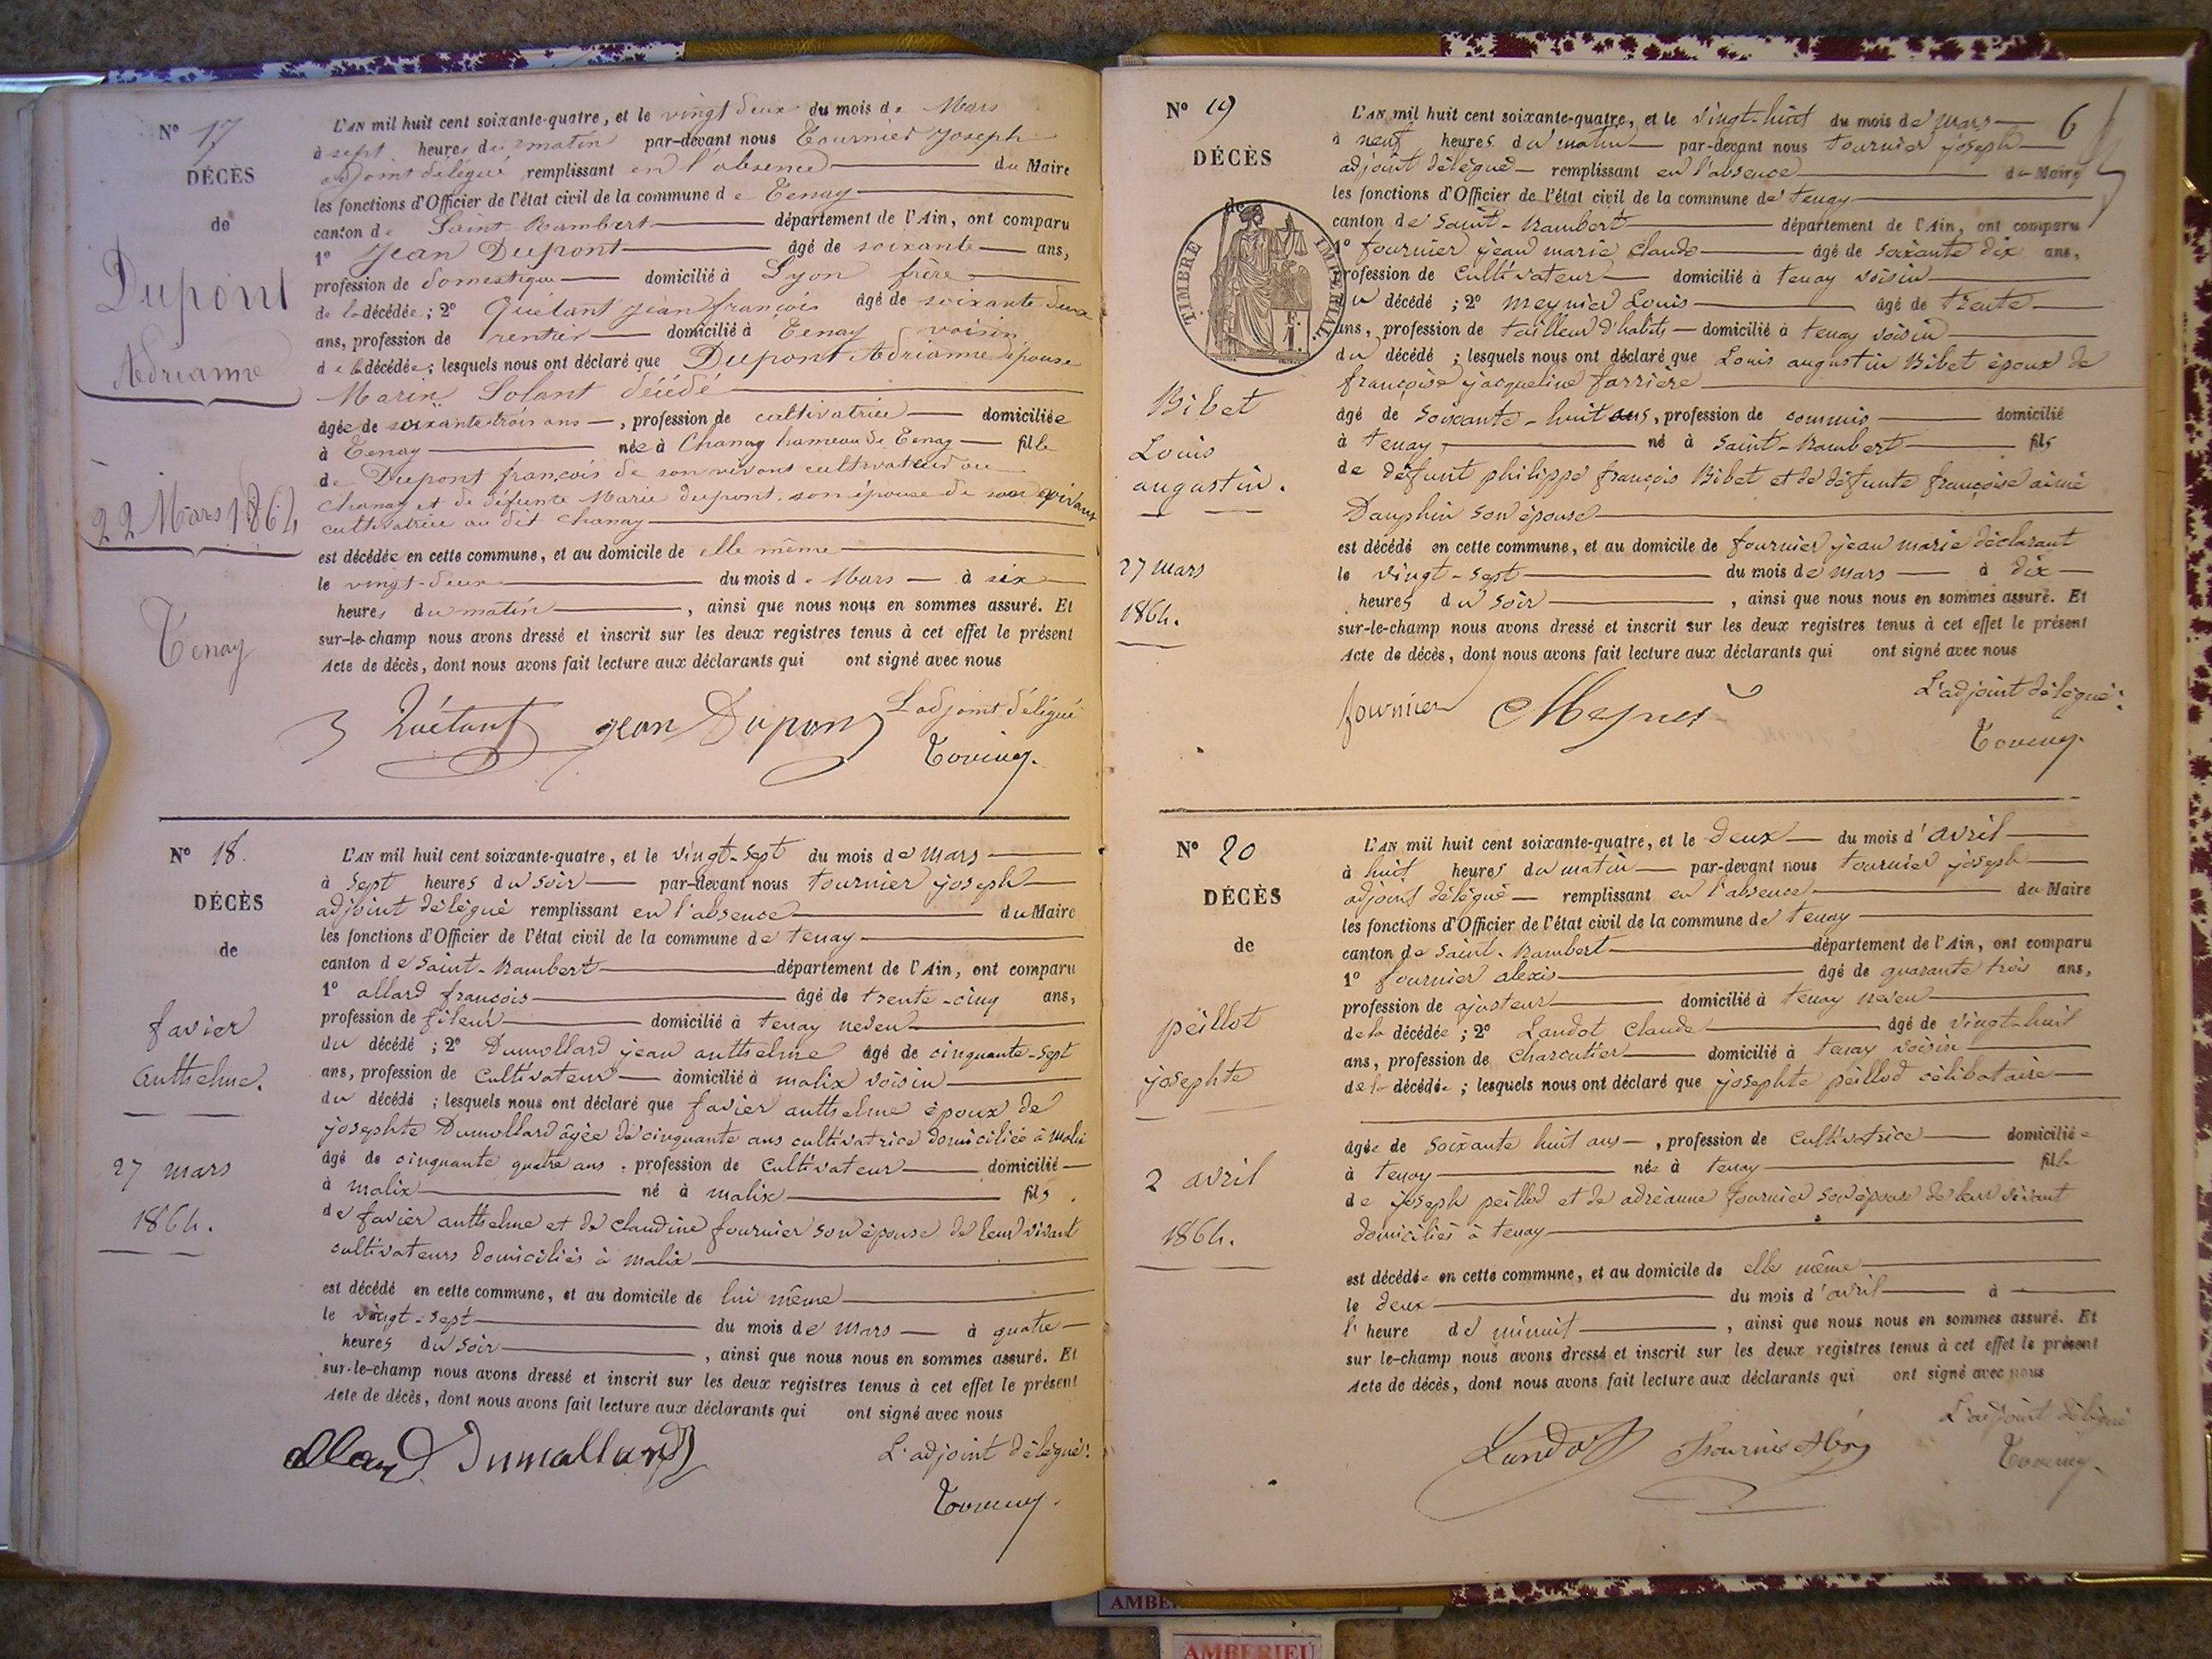 N° 17
DÉCÈS
de
Dupont
Adrianne
22 Mars 1864
Tenay
L'AN mil huit cent soixante-quatre, et le vingt deux du mois de Mars
à sept heures du matin par-devant nous Tournier Joseph
adjoint délégué remplissant en l'absence du Maire
les fonctions d'Officier de l'état civil de la commune de Tenay
canton de Saint Rambert département de l'Ain, ont comparu
1° Jean Dupont âgé de soixante ans,
profession de domestique domicilié à Lyon frère
de la décédée; 2° Quétant jean françois âgé de soixante deux
ans, profession de rentier domicilié à Tenay voisin
de la décédée; lesquels nous ont déclaré que Dupont Adrianne épouse
Marin Solant décédé
âgée de soixante trois ans, profession de cultivatrice domiciliée
à Tenay née à Chanay hameau de Tenay fille
de Dupont françois de son vivant cultivateur au
Chanay et de défunte Marie dupont son épouse de son vivant
cultivatrice au dit Chanay
est décédée en cette commune, et au domicile de elle même
le vingt-deux du mois de Mars à six
heures du matin, ainsi que nous nous en sommes assuré. Et
sur-le-champ nous avons dressé et inscrit sur les deux registres tenus à cet effet le présent
Acte de décès, dont nous avons fait lecture aux déclarants qui ont signé avec nous
L'adjoint délégué
Quétant jean Dupont
N° 18.
DÉCÈS
de
favier
anthelme.
27 mars
1864.
L'AN mil huit cent soixante-quatre, et le vingt-sept du mois de mars
à sept heures du soir par-devant nous tournier joseph
adjoint délégué remplissant en l'absence du Maire
les fonctions d'Officier de l'état civil de la commune de tenay
canton de saint-Rambert département de l'Ain, ont comparu
1° allard françois âgé de trente-cinq ans,
profession de fileur domicilié à tenay neveu
du décédé; 2° Dumollard jean anthelme âgé de cinquante-sept
ans, profession de cultivateur domicilié à malix voisin
du décédé; lesquels nous ont déclaré que favier anthelme époux de
josephte Dumollard âgée de cinquante ans cultivatrice domiciliée à malix
âgé de cinquante quatre ans, profession de cultivateur domicilié
à malix né à malix fils
de favier anthelme et de claudine fournier son épouse de leur vivant
cultivateurs domiciliés à malix
est décédé en cette commune, et au domicile de lui même
le vingt-sept du mois de mars à quatre
heures du soir, ainsi que nous nous en sommes assuré. Et
sur-le-champ nous avons dressé et inscrit sur les deux registres tenus à cet effet le présent
Acte de décès, dont nous avons fait lecture aux déclarants qui ont signé avec nous
allard Dumallard L'adjoint délégué.
N° 19
DÉCÈS
de
TIMBRE IMPÉRIAL
Bibet
Louis
augustin.
27 mars
1864.
6
L'AN mil huit cent soixante-quatre, et le vingt-huit du mois de mars
à neuf heures du matin par-devant nous tournier joseph
adjoint délégué remplissant en l'absence du Maire
les fonctions d'Officier de l'état civil de la commune de tenay
canton de saint-Rambert département de l'Ain, ont comparu
1° fournier jean marie claude âgé de soixante dix ans,
profession de cultivateur domicilié à tenay voisin
du décédé; 2° meynier Louis âgé de trente
ans, profession de tailleur d'habits domicilié à tenay voisin
du décédé; lesquels nous ont déclaré que Louis augustin Bibet époux de
françoise jacqueline farrière
âgé de soixante-huit ans, profession de commis domicilié
à tenay né à saint-Rambert fils
de défunt philippe françois Bibet et de défunte françoise aimé
Dauphin son épouse
est décédé en cette commune, et au domicile de fournier jean marie déclarant
le vingt-sept du mois de mars à dix
heures du soir, ainsi que nous nous en sommes assuré. Et
sur-le-champ nous avons dressé et inscrit sur les deux registres tenus à cet effet le présent
Acte de décès, dont nous avons fait lecture aux déclarants qui ont signé avec nous
L'adjoint délégué.
fournier
N° 20
DÉCÈS
de
peillot
josephte
2 avril
1864.
L'AN mil huit cent soixante-quatre, et le deux du mois d'avril
à huit heures du matin par-devant nous tournier joseph
adjoint délégué remplissant en l'absence du Maire
les fonctions d'Officier de l'état civil de la commune de tenay
canton de saint-Rambert département de l'Ain, ont comparu
1° fournier alexis âgé de quarante trois ans,
profession de ajusteur domicilié à tenay neveu
de la décédée; 2° Landot claude âgé de vingt-huit
ans, profession de charcutier domicilié à tenay voisin
de la décédée; lesquels nous ont déclaré que josephte peillod célibataire
âgée de soixante huit ans, profession de cultivatrice domiciliée
à tenay née à tenay fille
de joseph peillod et de adréanne fournier son épouse de leur vivant
domiciliés à tenay
est décédée en cette commune, et au domicile de elle même
le deux du mois d'avril à
l'heure de minuit, ainsi que nous nous en sommes assuré. Et
sur le-champ nous avons dressé et inscrit sur les deux registres tenus à cet effet le présent
Acte de décès, dont nous avons fait lecture aux déclarants qui ont signé avec nous
L'adjoint délégué
Landot
AMBERIEU